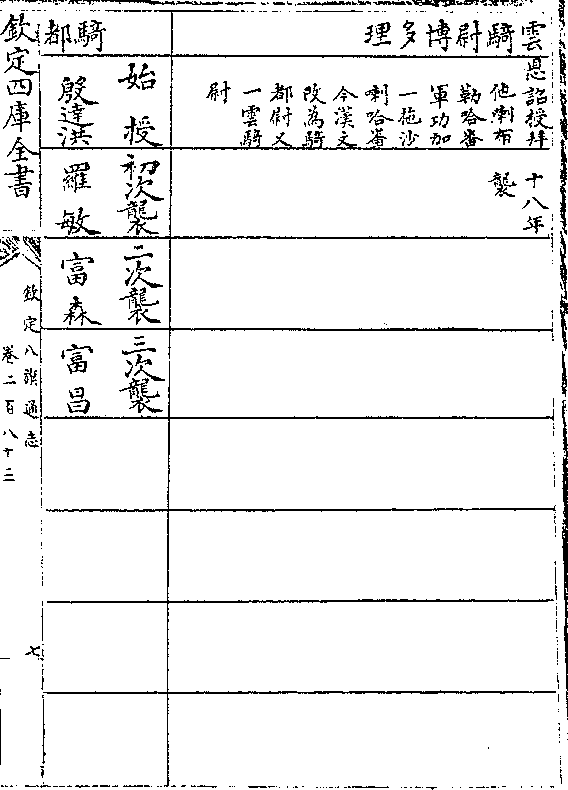 雲騎尉博多理
恩詔授拜
他喇布
勒哈番
軍功加
一拖沙
喇哈番
今漢文
改為騎
都尉又
一雲騎
尉
十八年
襲
騎都
始授
殷達洪
初次襲
羅敏
二次襲
富森
三次襲
富昌
欽定四庫全書
欽定八旗通志
卷二百八十二
七